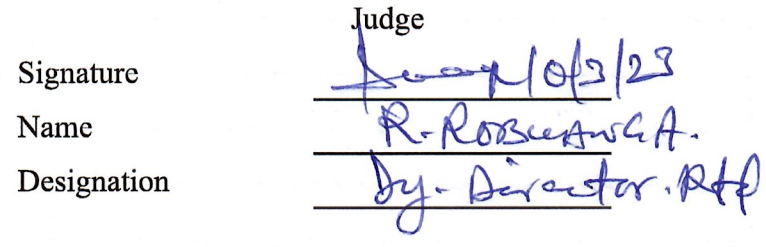 Judge
Signature 10/3/23
Name R. ROBUAWGA.
Designation Dy. Director. Rtd